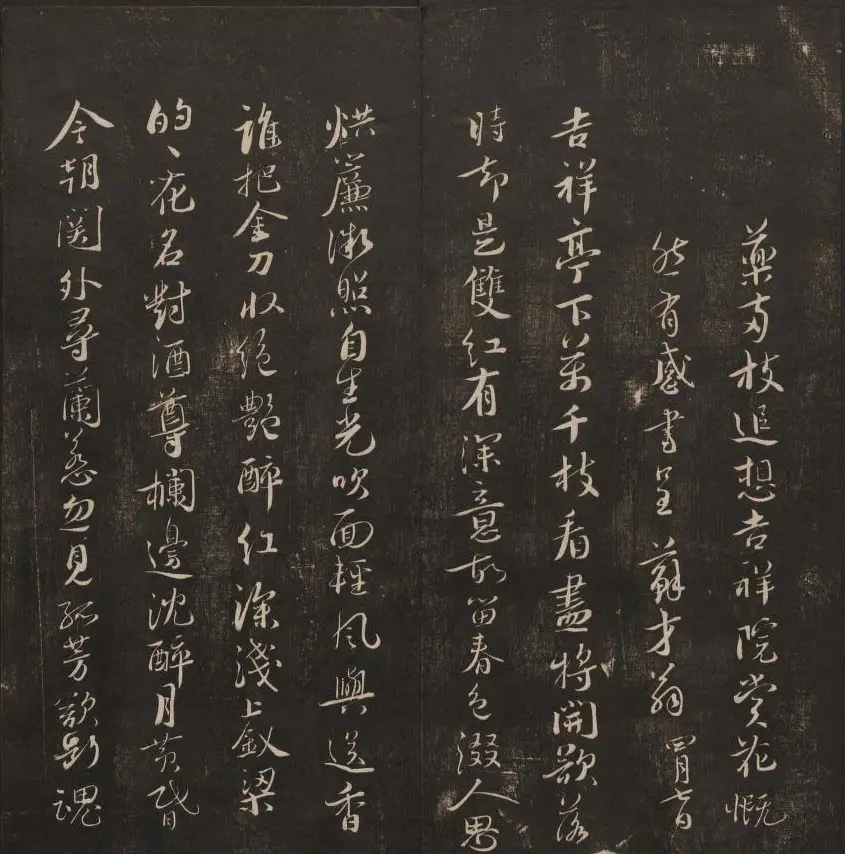 藥两枝追想吉祥院赏花慨
然有感書呈蘇才翁 四月七日
吉祥亭下萬千枝看盡將開欲落
時却是雙紅有深意故留春色綴人思
烘簾微照自生光吹面輕風與送香
誰把金刀收絕艷醉紅深淺上釵梁
的〻花名對酒尊欄邊沈醉月黃昏
今朝関外尋蘭蕙忽見孤芳欲斷魂